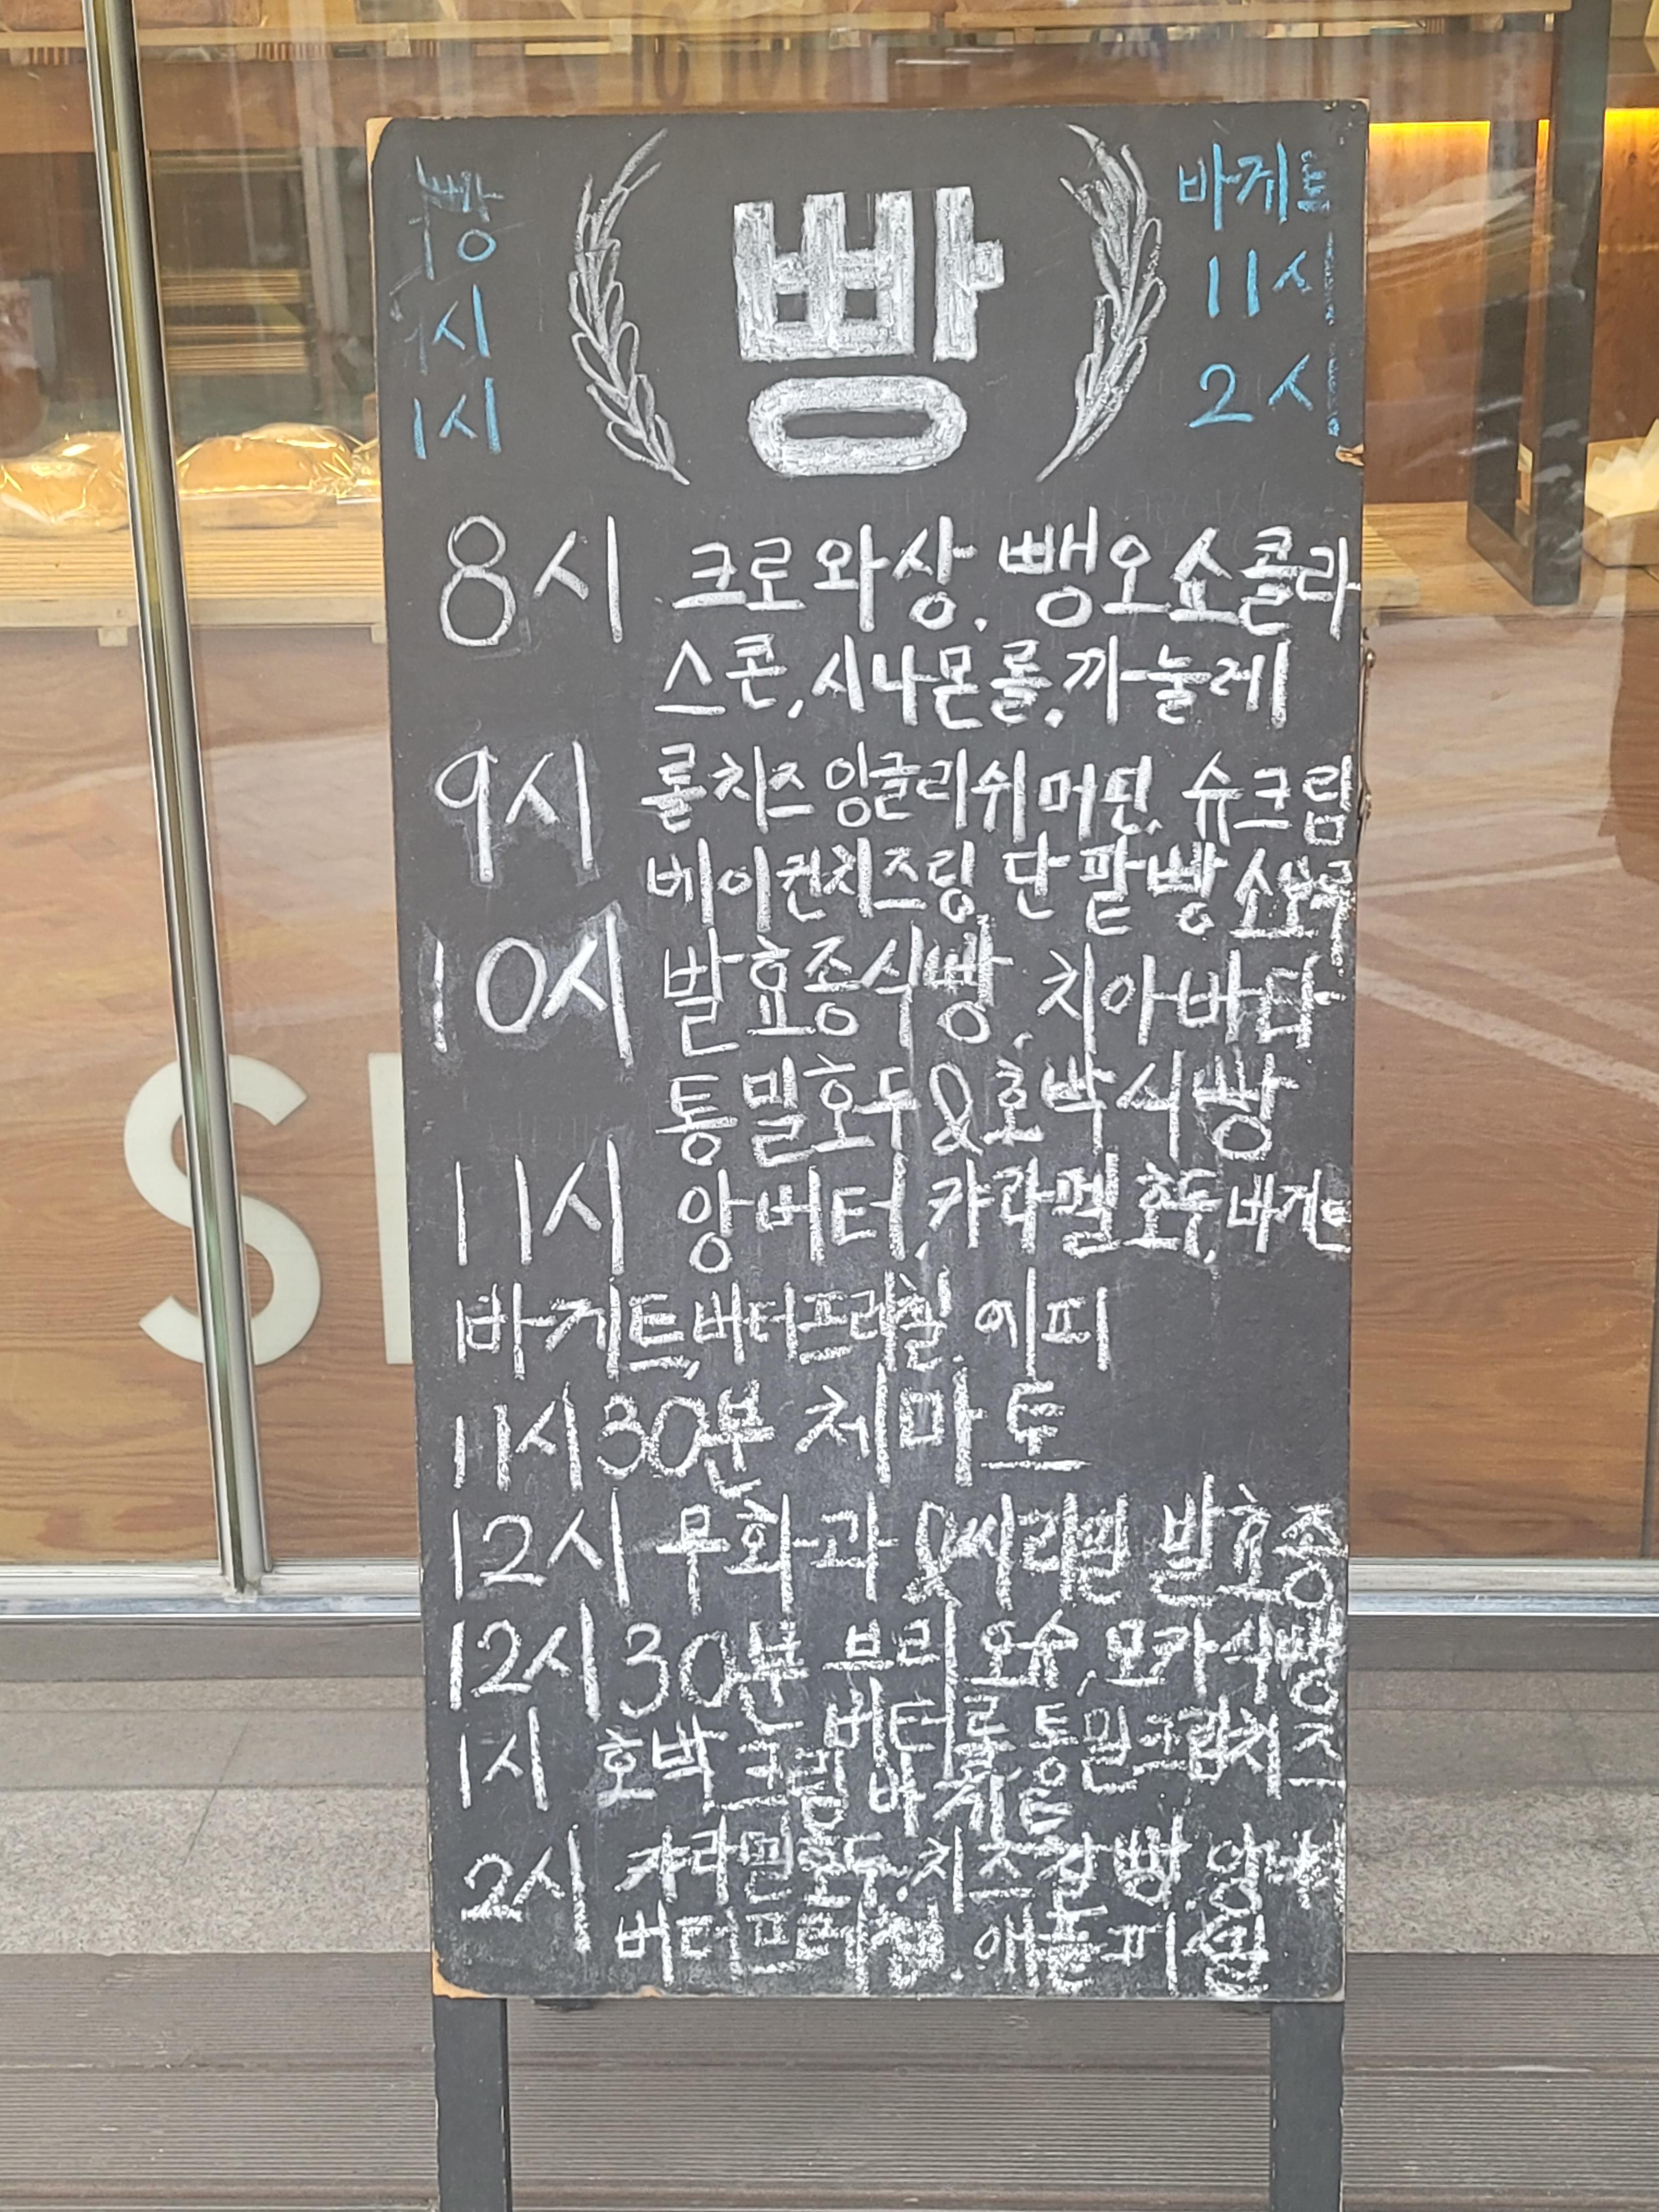 빵
시
1시
빵
바게트
11시
2시
8시 크로와상, 뺑오쇼콜라
스콘, 시나몬롤, 까눌레
9시 롤치즈 잉글리쉬머핀, 슈크림
베이컨치즈링, 단팥빵 소보루
10시 발효종식빵, 치아바타
통밀호두&호박식빵
11시 앙버터, 캬라멜호두, 바게트
바게트, 버터프레첼, 에피
11시30분 체마토
12시 무화과&씨리얼 발효종
12시30분 브리오슈, 모카식빵
버터롤, 통밀크림치즈
1시 호박크림바게트
2시 캬라멜호두, 치즈찰빵,
버터프레첼, 애플파이